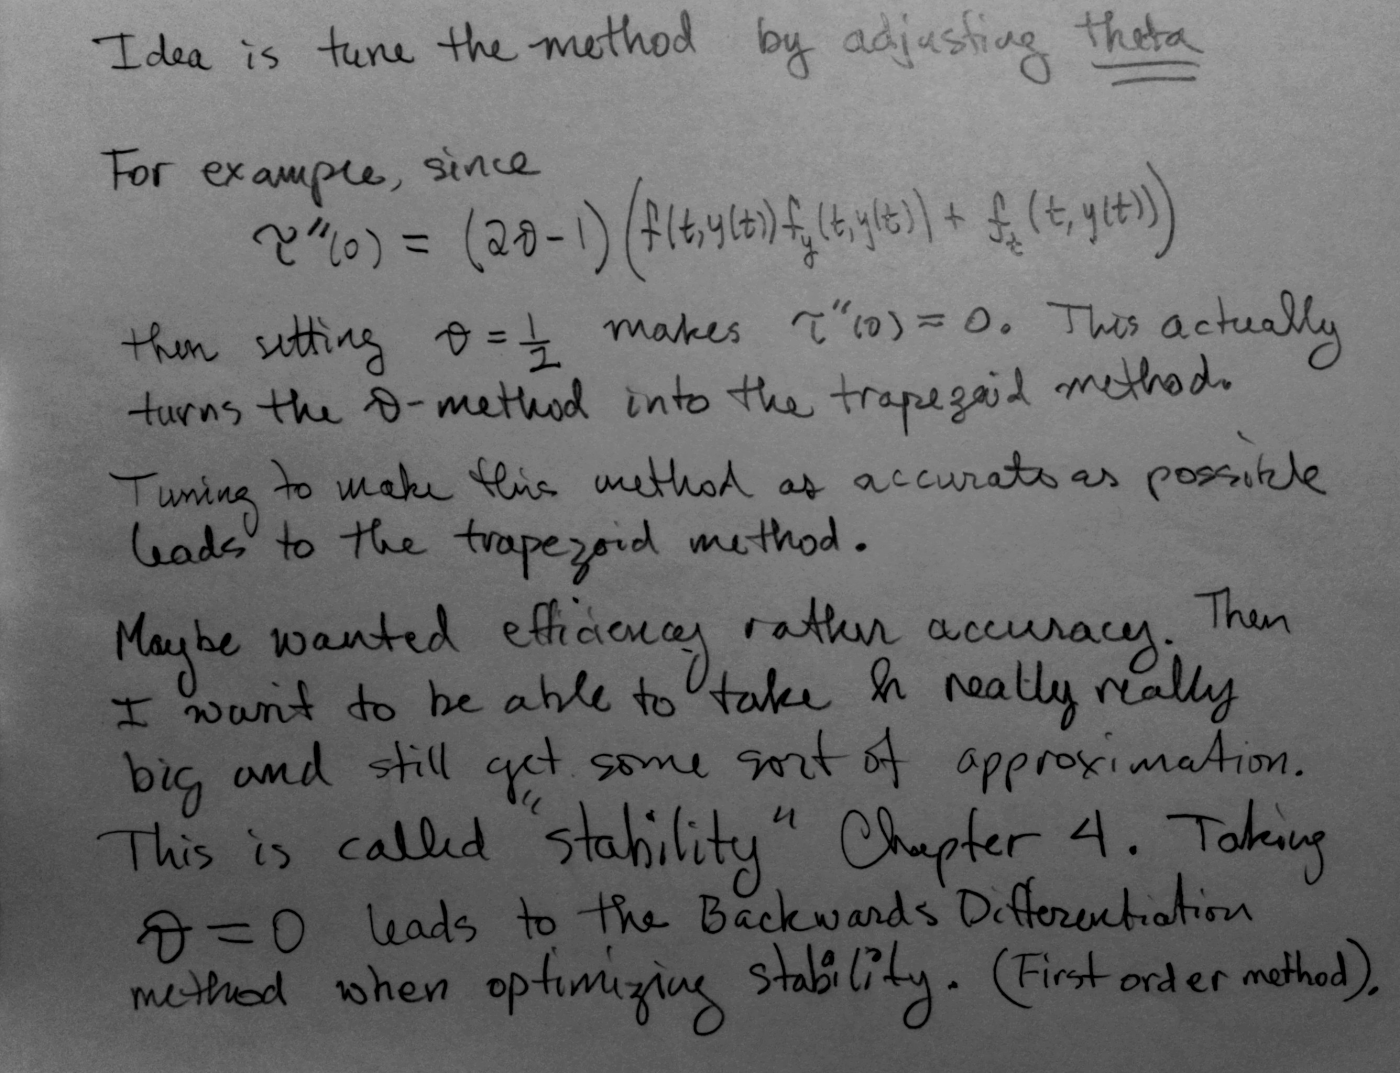 Idea is tune the method by adjusting theta
For example, since
τ''(0) = (2θ-1)(f(t,y(t))f_y(t,y(t)) + f_t(t,y(t)))
then setting θ = 1/2 makes τ''(0) = 0. This actually
turns the θ-method into the trapezoid method.
Tuning to make this method as accurate as possible
leads to the trapezoid method.
Maybe wanted efficiency rather accuracy. Then
I want to be able to take h really really
big and still get some sort of approximation.
This is called "stability" Chapter 4. Taking
θ = 0 leads to the Backwards Differentiation
method when optimizing stability. (First order method).